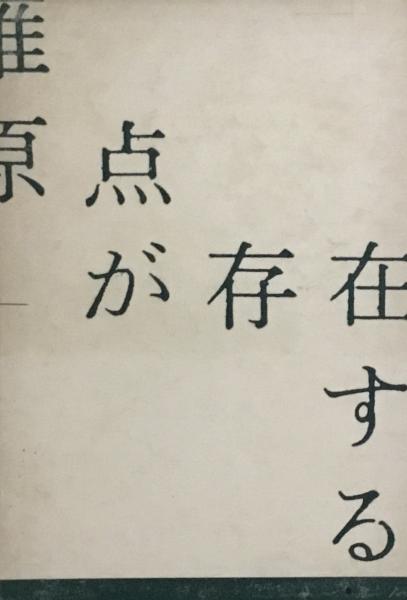 原
点が
存
在する